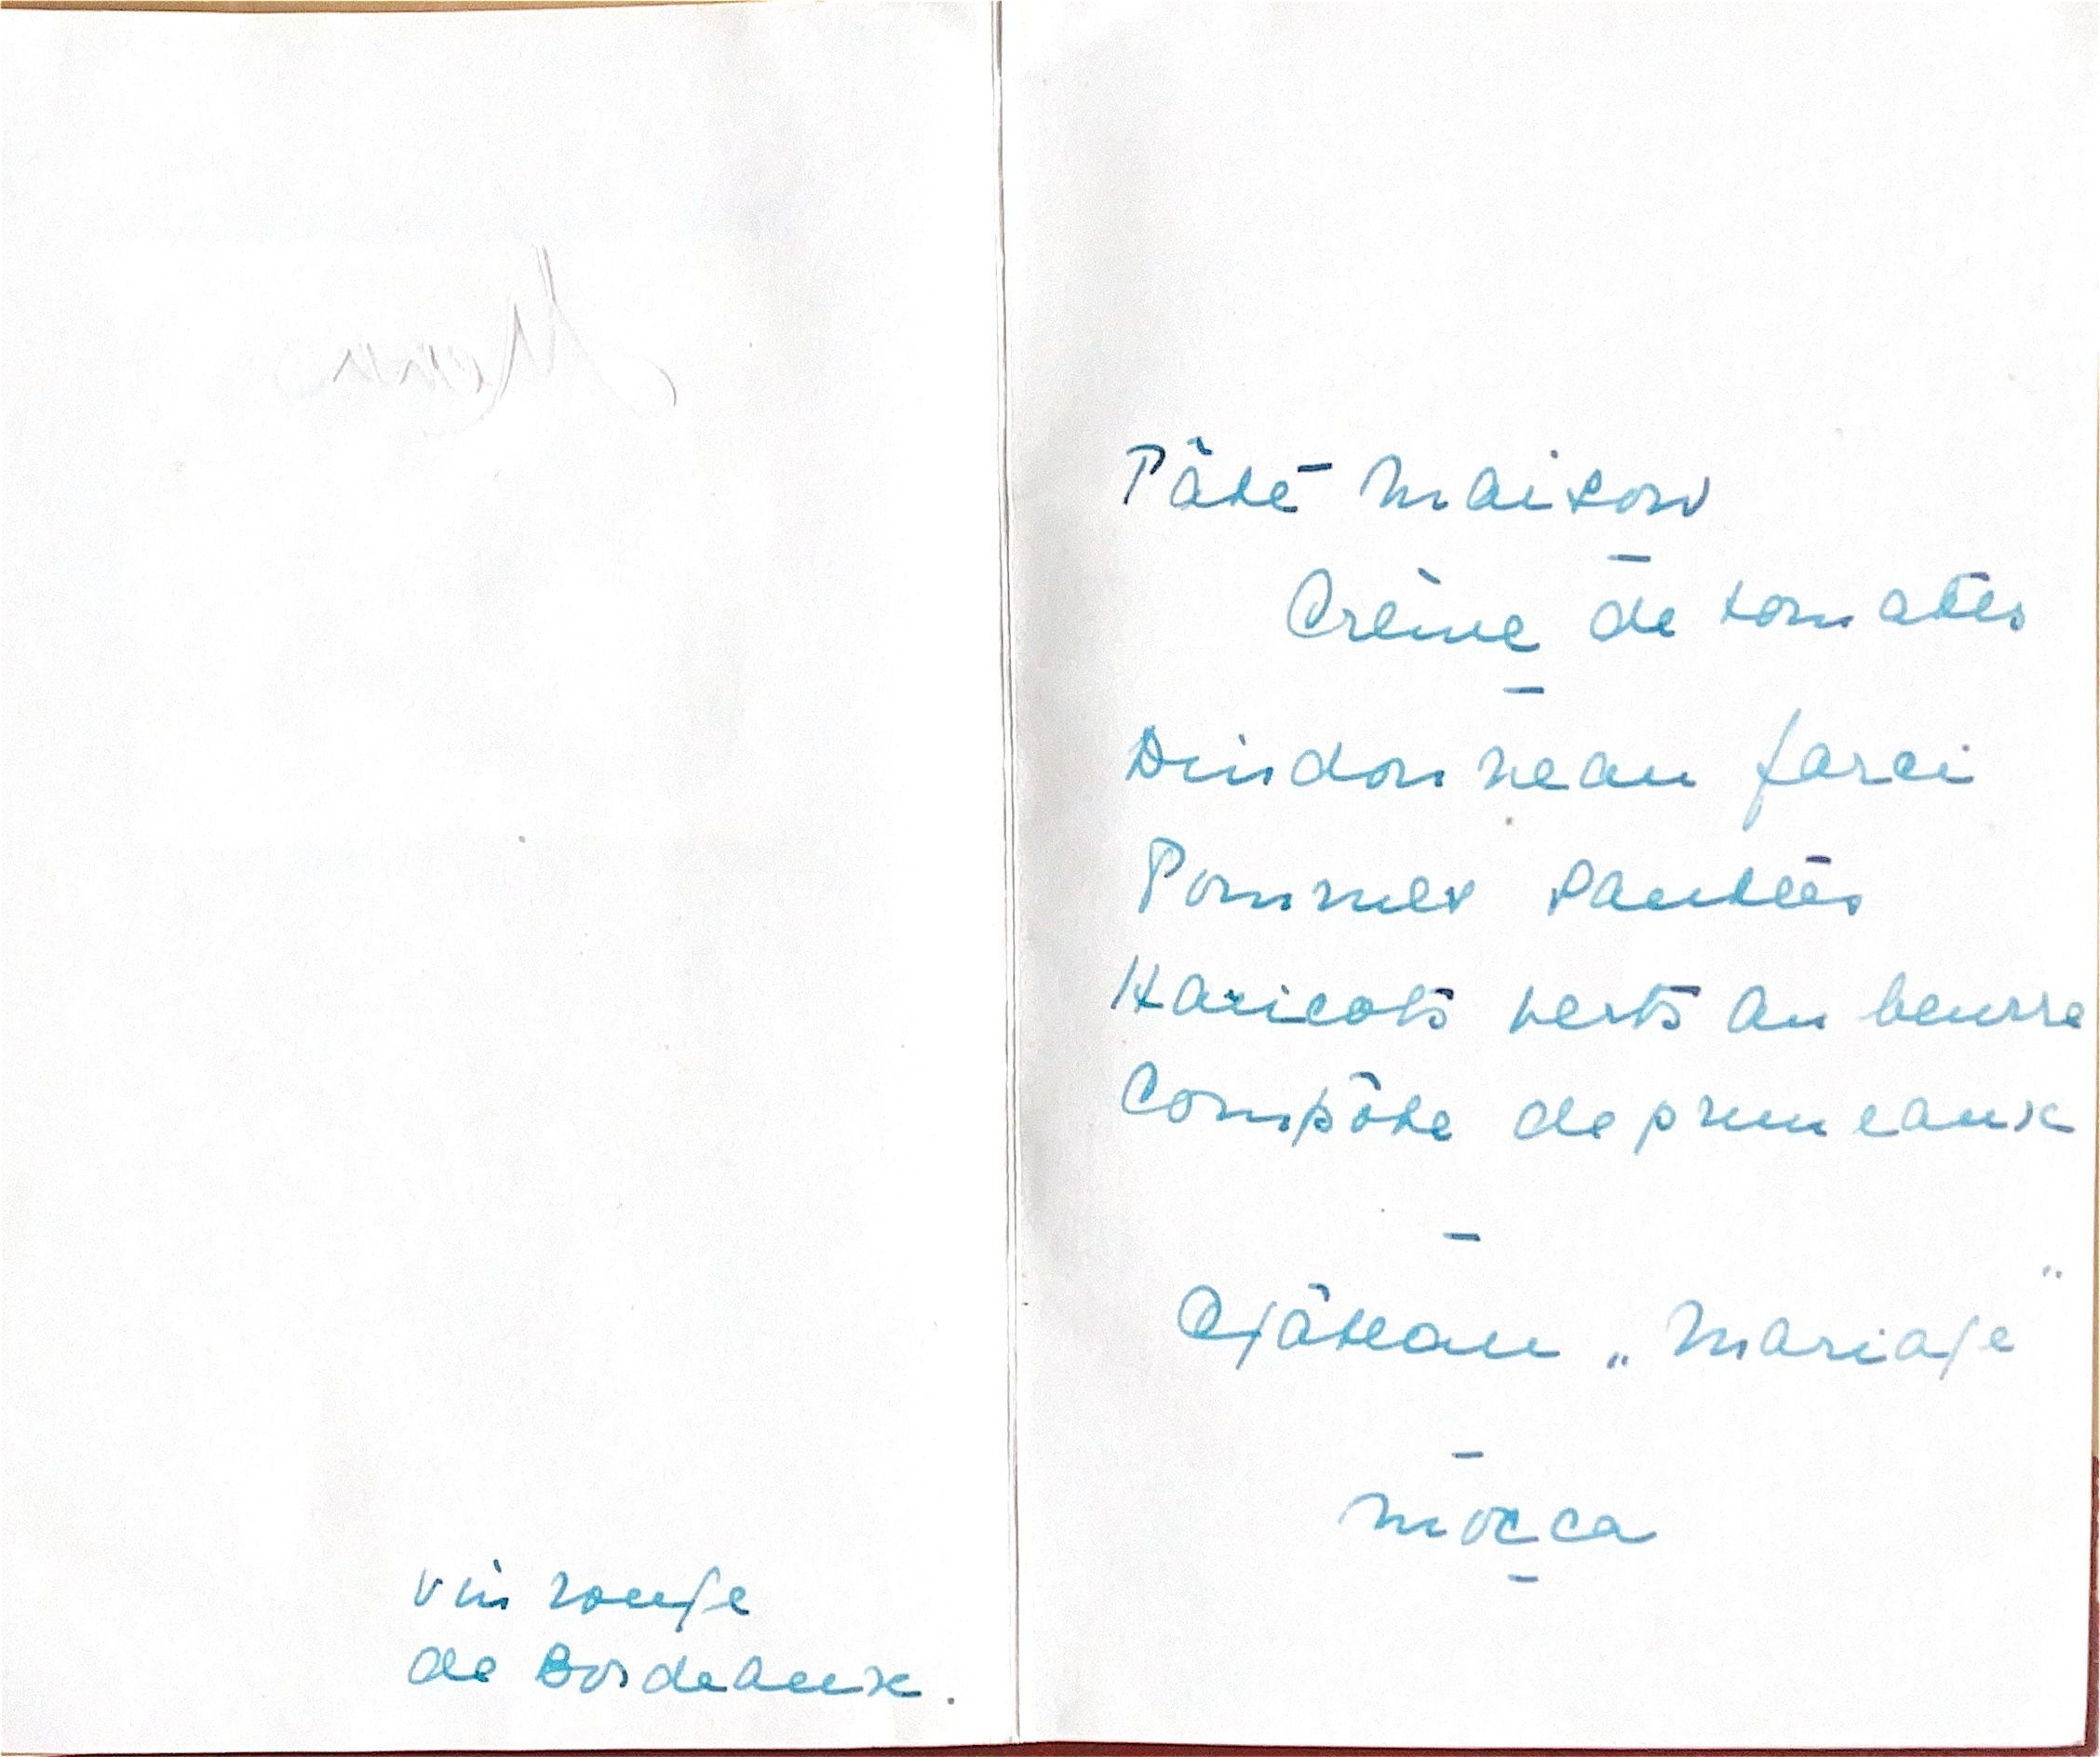 Menu
vin rouge
de Bordeaux.
Pâté Maison
–
Crème de tomates
–
Dindonneau farci
Pommes sautées
Haricots verts au beurre
Compôte de pruneaux
–
Gâteau „Mariage"
–
Mocca
–